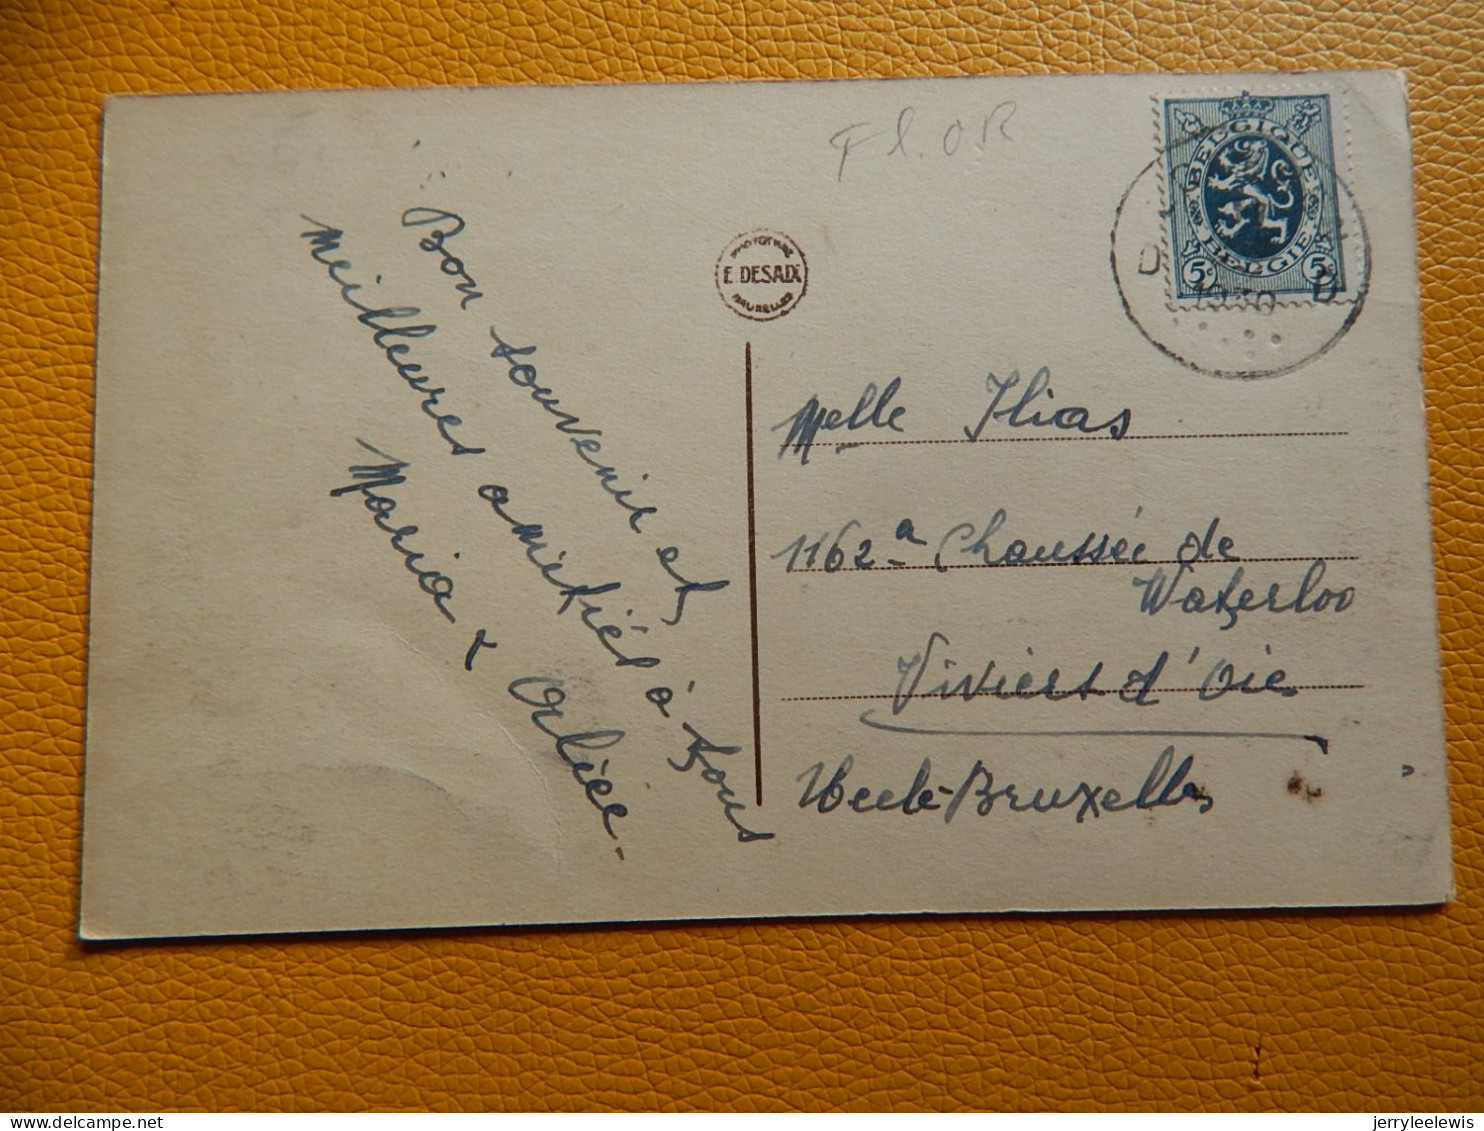 Fl. OR
BELGIQUE
BELGIE
5c 5c
E. DESAIX
BRUXELLES
Bon souvenir et
meilleures amitiés à tous
Maria &
Melle Ilias
1162a Chaussée de
Waterloo
Viviers d'Oie
Uccle-Bruxelles
delcampe.net
jerryleelewis